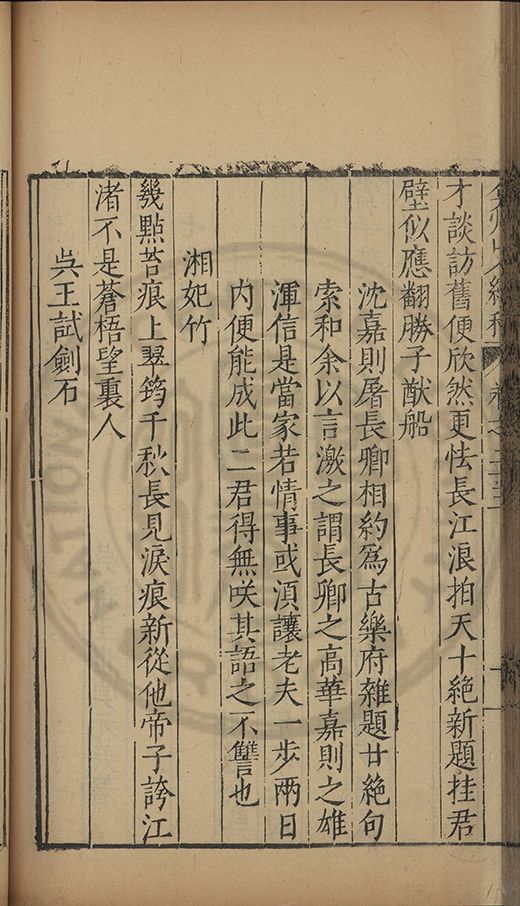 弇州山人續稿 卷之二十三
才談訪舊便欣然更怯長江浪拍天十絕新題挂君
壁似應翻勝子猷船
沈嘉則屠長卿相約爲古樂府雜題廿絕句
索和余以言激之謂長卿之高華嘉則之雄
渾信是當家若情事或須讓老夫一步兩日
內便能成此二君得無咲其語之不讐也
湘妃竹
幾點苔痕上翠筠千秋長見淚痕新從他帝子誇江
渚不是蒼梧望裏人
吳王試劍石